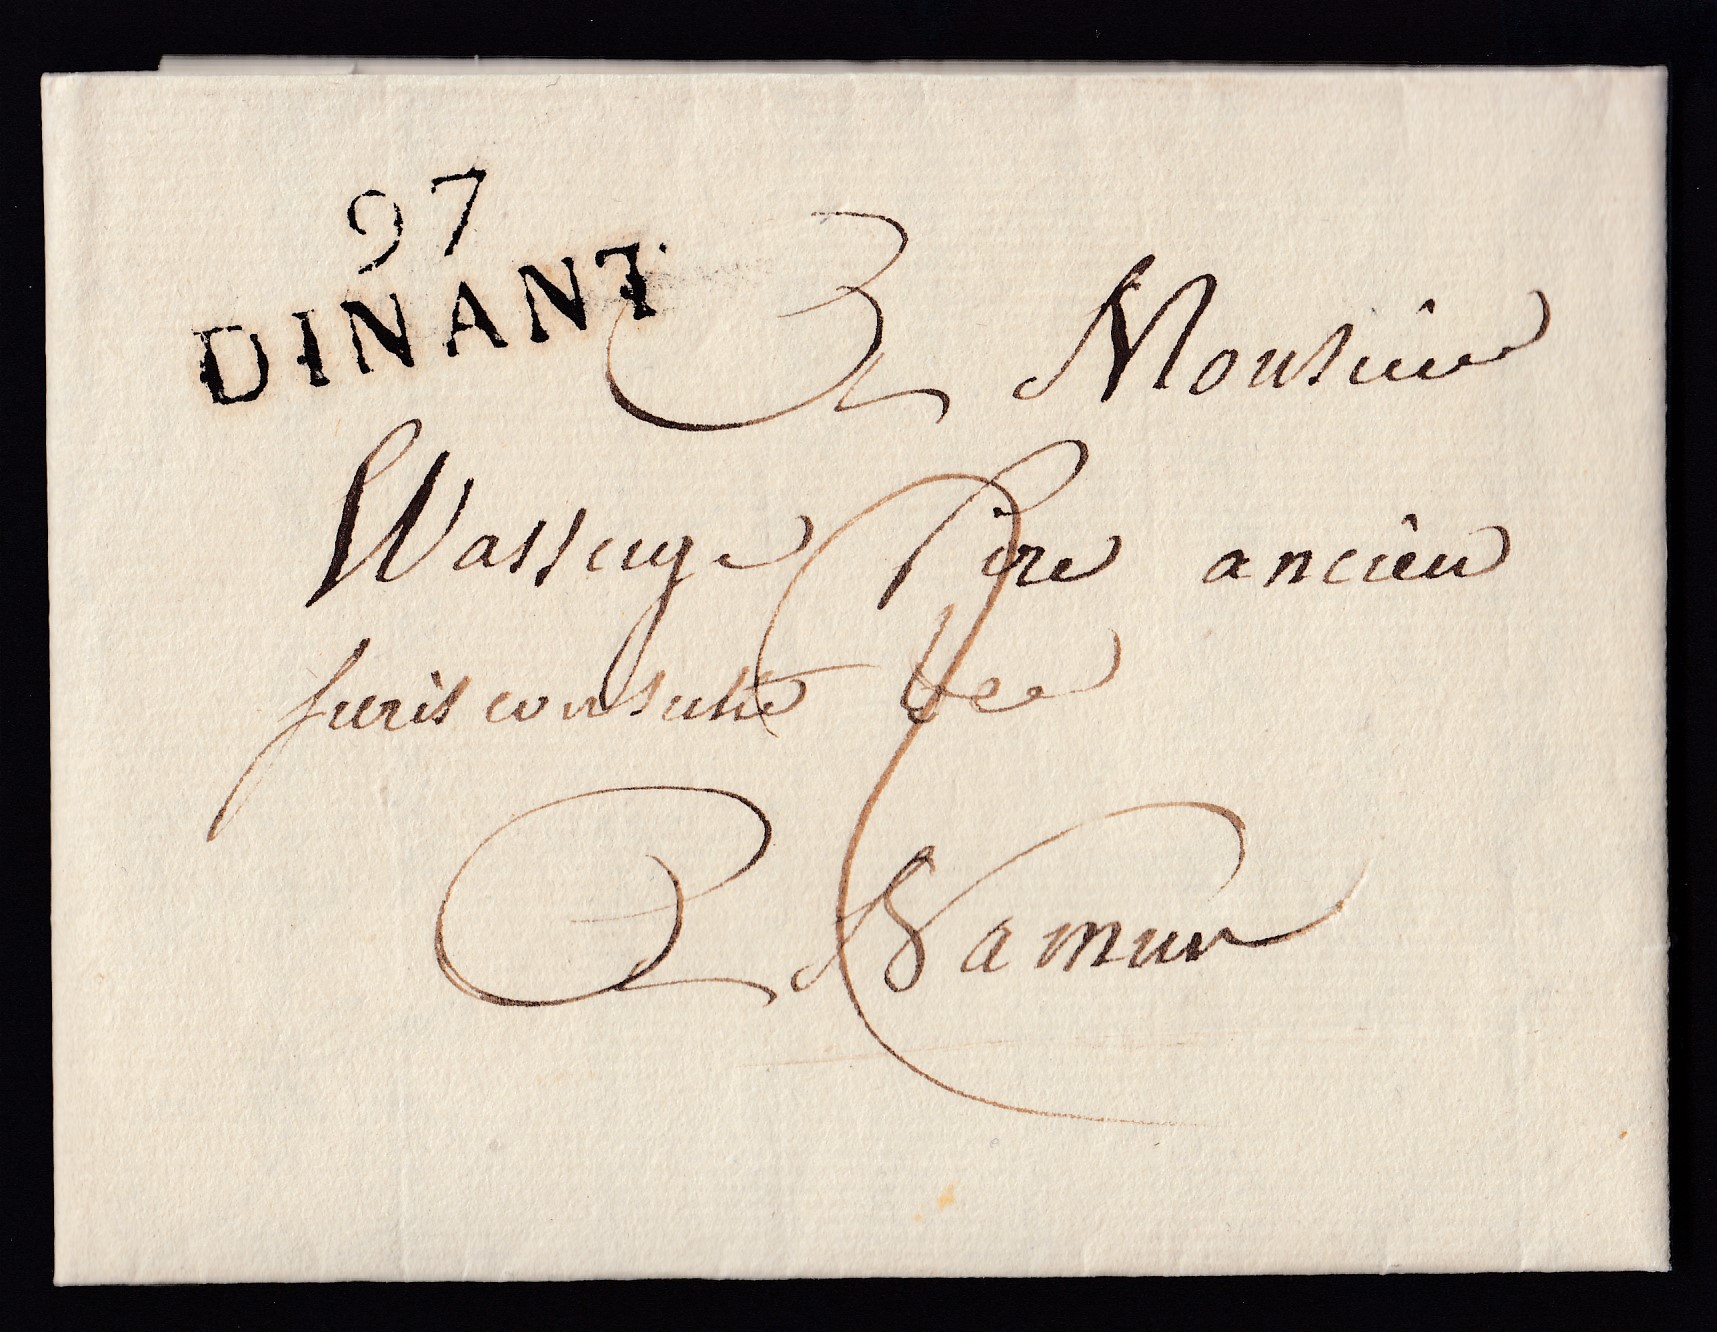 97
DINANT
A Monsieur
Wasseige Pere ancien
jurisconsulte
A Namur